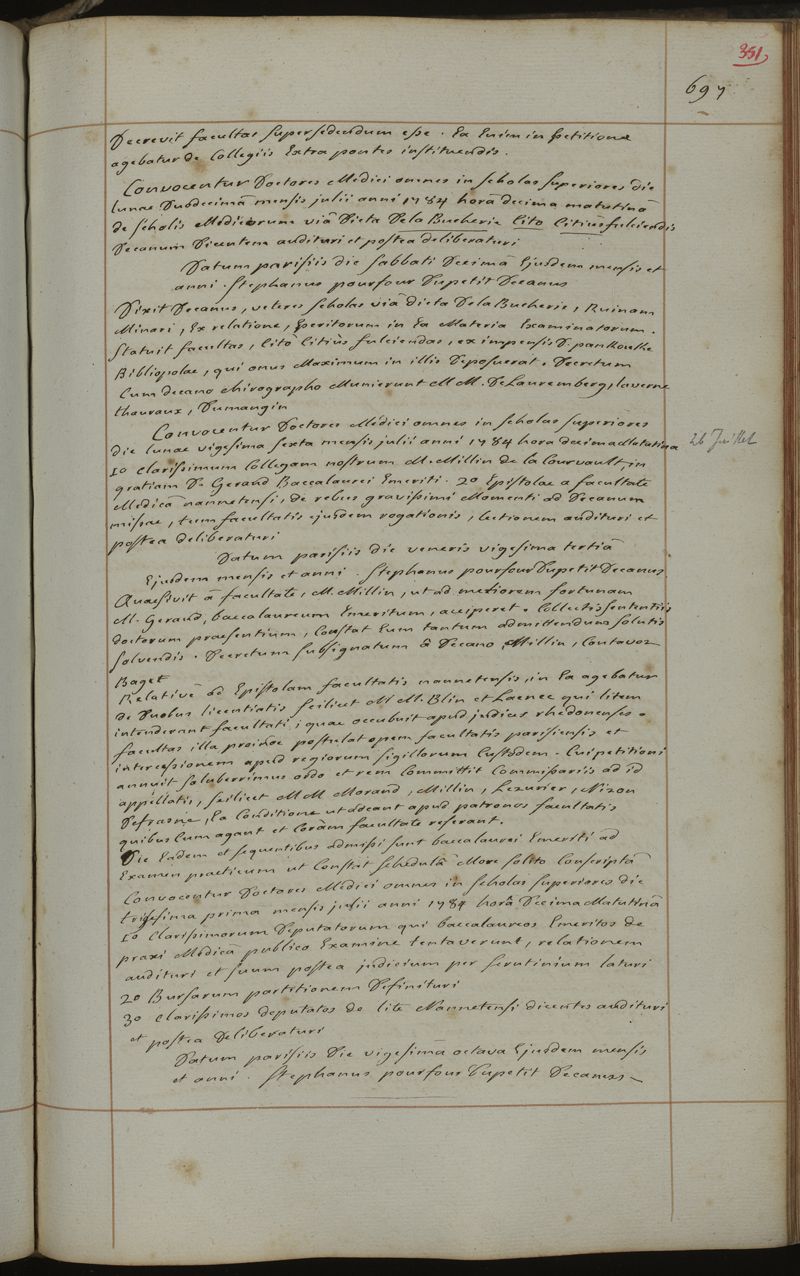 351
697
Decrevit facultas supersedendum esse. Ea Enim in petitione
agebatur de Collegiis Extra pontes instituendis.
Convocentur Doctores Medici omnes in scholas superiores die
lunae Duodecimâ mensis julii anni 1784 horâ decima matutinâ
de scholis Medicorum viâ Dicta De la Bucherie Cito Citiùs fulciendis
Decanum Dicentem audituri et postea deliberaturi
Datum parisiis die sabbati Decimâ Ejusdem mensis et
anni. Stephanus pourfour Dupetit Decanus
Dixit Decanus, veteres scholas viâ dicta De la Bucherie, Ruinam
Minari, Ex relatione, peritorum in Ea Materia Examinatorum.
Statuit facultas, Cito Citiùs fulciendas, ex impensis D. pankouke
Bibliopolae, qui onus Maximum in illis Deposuerat. Decretum
Cum decano chirographo Munierunt MM. De Lauremberg, laverne
thauraux, Dumangin
Convocentur Doctores Medici omnes in scholas superiores
die lunae vigesima sexta mensis julii anni 1784 hora decima Matutina
26 Juillet
1o Clarissimum Collegam nostrum M. Millin de la Courvault, in
gratiam D. Geraud Baccalaurei Emeriti. 2o Epistolae a facultate
Medicâ nannetensi, de rebus gravissimi Momenti ad Decanum
missae, tum facultatis ejusdem rogationis, lectionem audituri et
postea deliberaturi
Datum parisiis die veneris vigesima tertiâ
Ejusdem mensis et anni. Stephanus pourfour Dupetit Decanus
Quaesivit â facultate, M. Millin, ut ad meliorem fortunam
M. Geraud, baccalaureum Emeritum, acciperet. Collectis sententiis
doctorum praesentium, Constat Eum tantum admittendum solutis
solvendis. Decretum subsignatum â Decano, Millin, Contavoz
Baget
Relativè ad Epistolam facultatis nannetensis, in Ea agebatur
de Duobus licentiatis scilicet MM. Blin et Laenec qui litem
intenderant facultati, quae occubuit apud judices rhedonenses.
facultas illa proinde postulat opem facultatis parisiensis et
intercessionem apud regiorum sigillorum Custodem. Cui petitioni
annuit saluberrimus ordo et rem Committit Commissariis ad id
appellatis, scilicet MM Morand, Millin, Lezurier, Nizon
Defrasne, Ea Conditione ut adeant apud patronos facultatis
quibus Cum agant et Coràm facultate referant.
Die Eâdem et sequentibus admissi sunt baccalaurei Emeriti ad
Examen practicum ut Constat schedulâ More solito Conscriptâ
Convocentur Doctores Medici omnes in scholas superiores die
trigesima prima mensis julii anni 1784 horâ Decima Matutinâ
1o Clarissimorum Deputatorum qui baccalaureos Emeritos de
praxi Medicâ publico Examine tentaverunt, relationem
audituri et suum postea judicium per scrutinium laturi
2o Bursarum partitionem Definituri
3o Clarissimos deputatos de lite Nannetensi dicentes audituri
et postea Deliberaturi
Datum parisiis Die vigesimâ octava Ejusdem mensis
et anni. Stephanus pourfour Dupetit Decanus